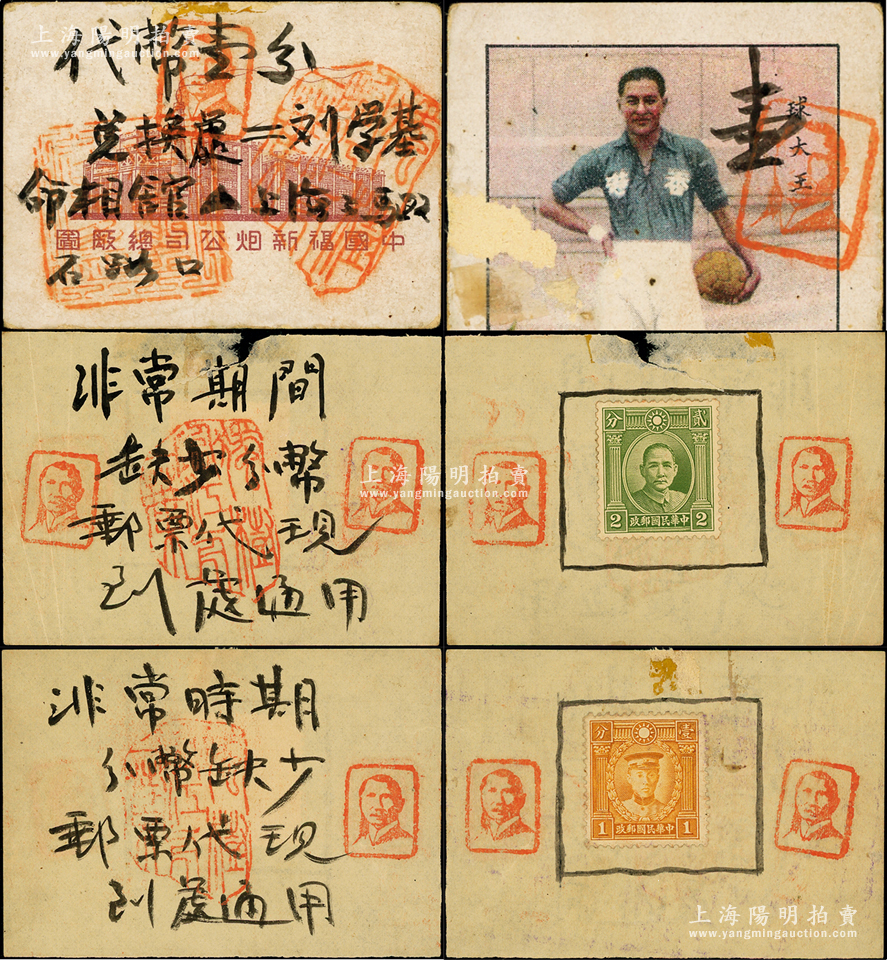 上海陽明拍賣
www.yangmingauction.com
代幣壹分
兌換處=刘学基
命相舘
上海三馬路
中國福新烟公司總厰圖
石路口
壹
球大王
非常期間
缺少分幣
郵票代現
到處通用
上海陽明拍賣
www.yangmingauction.com
分
貳
2
2
中華民國郵政
非常時期
分幣缺少
郵票代現
到處通用
分
壹
1
1
中華民國郵政
上海陽明拍賣
www.yangmingauction.com